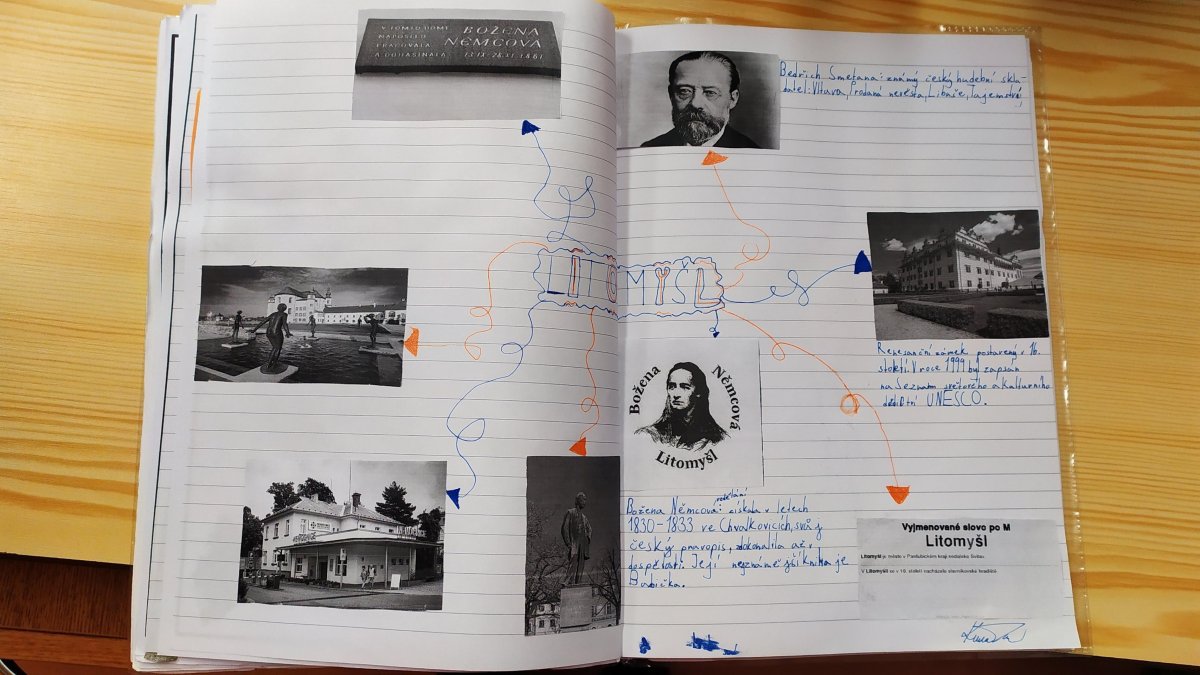 V TOMTO DOMĚ
NAPOSLED
PRACOVALA
A DOHASÍNALA
BOŽENA
NĚMCOVÁ
Bedřich Smetana: známý český hudební skla-
datel: Vltava, Prodaná nevěsta, Libuše, Tajemství
LITOMYŠL
Renesanční zámek postavený v 16.
století. V roce 1999 byl zapsán
na Seznam světového a kulturního
dědictví UNESCO.
Božena Němcová
Litomyšl
Božena Němcová: vzdělání získala v letech
1830-1833 ve Chvalkovicích, svůj
český pravopis, zdokonalila až v
dospělosti. Její nejznámější kniha je
Babička.
Vyjmenované slovo po M
Litomyšl
Litomyšl je město v Pardubickém kraji nedaleko Svitav.
V Litomyšli se v 10. století nacházelo slavníkovské hradiště.